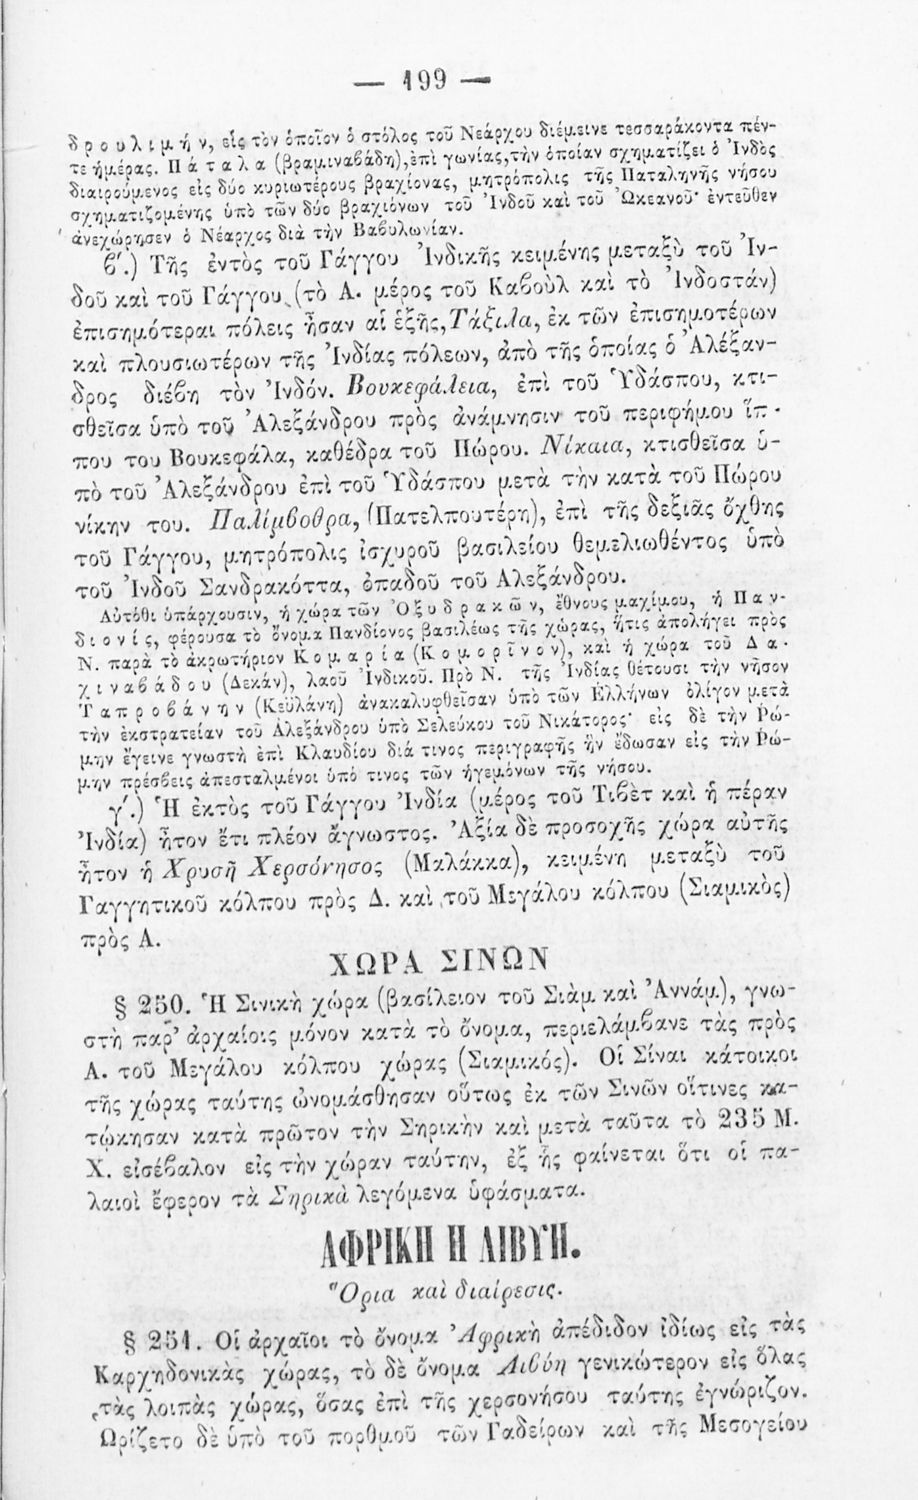 — 199 —
δρουλιμήν, εἰς τὸν ὁποῖον ὁ στόλος τοῦ Νεάρχου διέμεινε τεσσαράκοντα πέν-
τε ἡμέρας. Πάταλα (βραμιναβάδη), ἐπὶ γωνίας, τὴν ὁποίαν σχηματίζει ὁ Ἰνδὸς
διαιρούμενος εἰς δύο κυριωτέρους βραχίονας, μητρόπολις τῆς Παταληνῆς νήσου
σχηματιζομένης ὑπὸ τῶν δύο βραχιόνων τοῦ Ἰνδοῦ καὶ τοῦ Ὠκεανοῦ· ἐντεῦθεν
ἀνεχώρησεν ὁ Νέαρχος διὰ τὴν Βαβυλωνίαν.
β΄.) Τῆς ἐντὸς τοῦ Γάγγου Ἰνδικῆς κειμένης μεταξὺ τοῦ Ἰν-
δοῦ καὶ τοῦ Γάγγου (τὸ Α. μέρος τοῦ Καβοὺλ καὶ τὸ Ἰνδοστάν)
ἐπισημότεραι πόλεις ἦσαν αἱ ἑξῆς, Τάξιλα, ἐκ τῶν ἐπισημοτέρων
καὶ πλουσιωτέρων τῆς Ἰνδίας πόλεων, ἀπὸ τῆς ὁποίας ὁ Ἀλέξαν-
δρος διέβη τὸν Ἰνδόν. Βουκεφάλεια, ἐπὶ τοῦ Ὑδάσπου, κτι-
σθεῖσα ὑπὸ τοῦ Ἀλεξάνδρου πρὸς ἀνάμνησιν τοῦ περιφήμου ἵπ-
που του Βουκεφάλα, καθέδρα τοῦ Πώρου. Νίκαια, κτισθεῖσα ὑ-
πὸ τοῦ Ἀλεξάνδρου ἐπὶ τοῦ Ὑδάσπου μετὰ τὴν κατὰ τοῦ Πώρου
νίκην του. Παλίμβοθρα, (Πατελπουτέρη), ἐπὶ τῆς δεξιᾶς ὄχθης
τοῦ Γάγγου, μητρόπολις ἰσχυροῦ βασιλείου θεμελιωθέντος ὑπὸ
τοῦ Ἰνδοῦ Σανδρακόττα, ὀπαδοῦ τοῦ Ἀλεξάνδρου.
Αὐτόθι ὑπάρχουσιν, ἡ χώρα τῶν Ὀξυδρακῶν, ἔθνους μαχίμου, ἡ Παν-
διονίς, φέρουσα τὸ ὄνομα Πανδίονος βασιλέως τῆς χώρας, ἥτις ἀπολήγει πρὸς
Ν. παρὰ τὸ ἀκρωτήριον Κομαρία (Κομορῖνον), καὶ ἡ χώρα τοῦ Δα-
χιναβάδου (Δεκάν), λαοῦ Ἰνδικοῦ. Πρὸ Ν. τῆς Ἰνδίας θέτουσι τὴν νῆσον
Ταπροβάνην (Κεϋλάνη) ἀνακαλυφθεῖσαν ὑπὸ τῶν Ἑλλήνων ὀλίγον μετὰ
τὴν ἐκστρατείαν τοῦ Ἀλεξάνδρου ὑπὸ Σελεύκου τοῦ Νικάτορος· εἰς δὲ τὴν Ῥώ-
μην ἔγεινε γνωστὴ ἐπὶ Κλαυδίου διά τινος περιγραφῆς ἣν ἔδωσαν εἰς τὴν Ῥώ-
μην πρέσβεις ἀπεσταλμένοι ὑπό τινος τῶν ἡγεμόνων τῆς νήσου.
γ΄.) Ἡ ἐκτὸς τοῦ Γάγγου Ἰνδία (μέρος τοῦ Τιβὲτ καὶ ἡ πέραν
Ἰνδία) ἦτον ἔτι πλέον ἄγνωστος. Ἀξία δὲ προσοχῆς χώρα αὐτῆς
ἦτον ἡ Χρυσῆ Χερσόνησος (Μαλάκκα), κειμένη μεταξὺ τοῦ
Γαγγητικοῦ κόλπου πρὸς Δ. καὶ τοῦ Μεγάλου κόλπου (Σιαμικὸς)
πρὸς Α.
ΧΩΡΑ ΣΙΝΩΝ
§ 250. Ἡ Σινικὴ χώρα (βασίλειον τοῦ Σιὰμ καὶ Ἀννάμ), γνω-
στὴ παρ' ἀρχαίοις μόνον κατὰ τὸ ὄνομα, περιελάμβανε τὰς πρὸς
Α. τοῦ Μεγάλου κόλπου χώρας (Σιαμικός). Οἱ Σίναι κάτοικοι
τῆς χώρας ταύτης ὠνομάσθησαν οὕτως ἐκ τῶν Σινῶν οἵτινες κα-
τώκησαν κατὰ πρῶτον τὴν Σηρικὴν καὶ μετὰ ταῦτα τὸ 235 Μ.
Χ. εἰσέβαλον εἰς τὴν χώραν ταύτην, ἐξ ἧς φαίνεται ὅτι οἱ πα-
λαιοὶ ἔφερον τὰ Σηρικὰ λεγόμενα ὑφάσματα.
ΑΦΡΙΚΗ Η ΛΙΒΥΗ.
Ὅρια καὶ διαίρεσις.
§ 251. Οἱ ἀρχαῖοι τὸ ὄνομα Ἀφρικὴ ἀπέδιδον ἰδίως εἰς τὰς
Καρχηδονικὰς χώρας, τὸ δὲ ὄνομα Λιβύη γενικώτερον εἰς ὅλας
τὰς λοιπὰς χώρας, ὅσας ἐπὶ τῆς χερσονήσου ταύτης ἐγνώριζον.
Ὡρίζετο δὲ ὑπὸ τοῦ πορθμοῦ τῶν Γαδείρων καὶ τῆς Μεσογείου